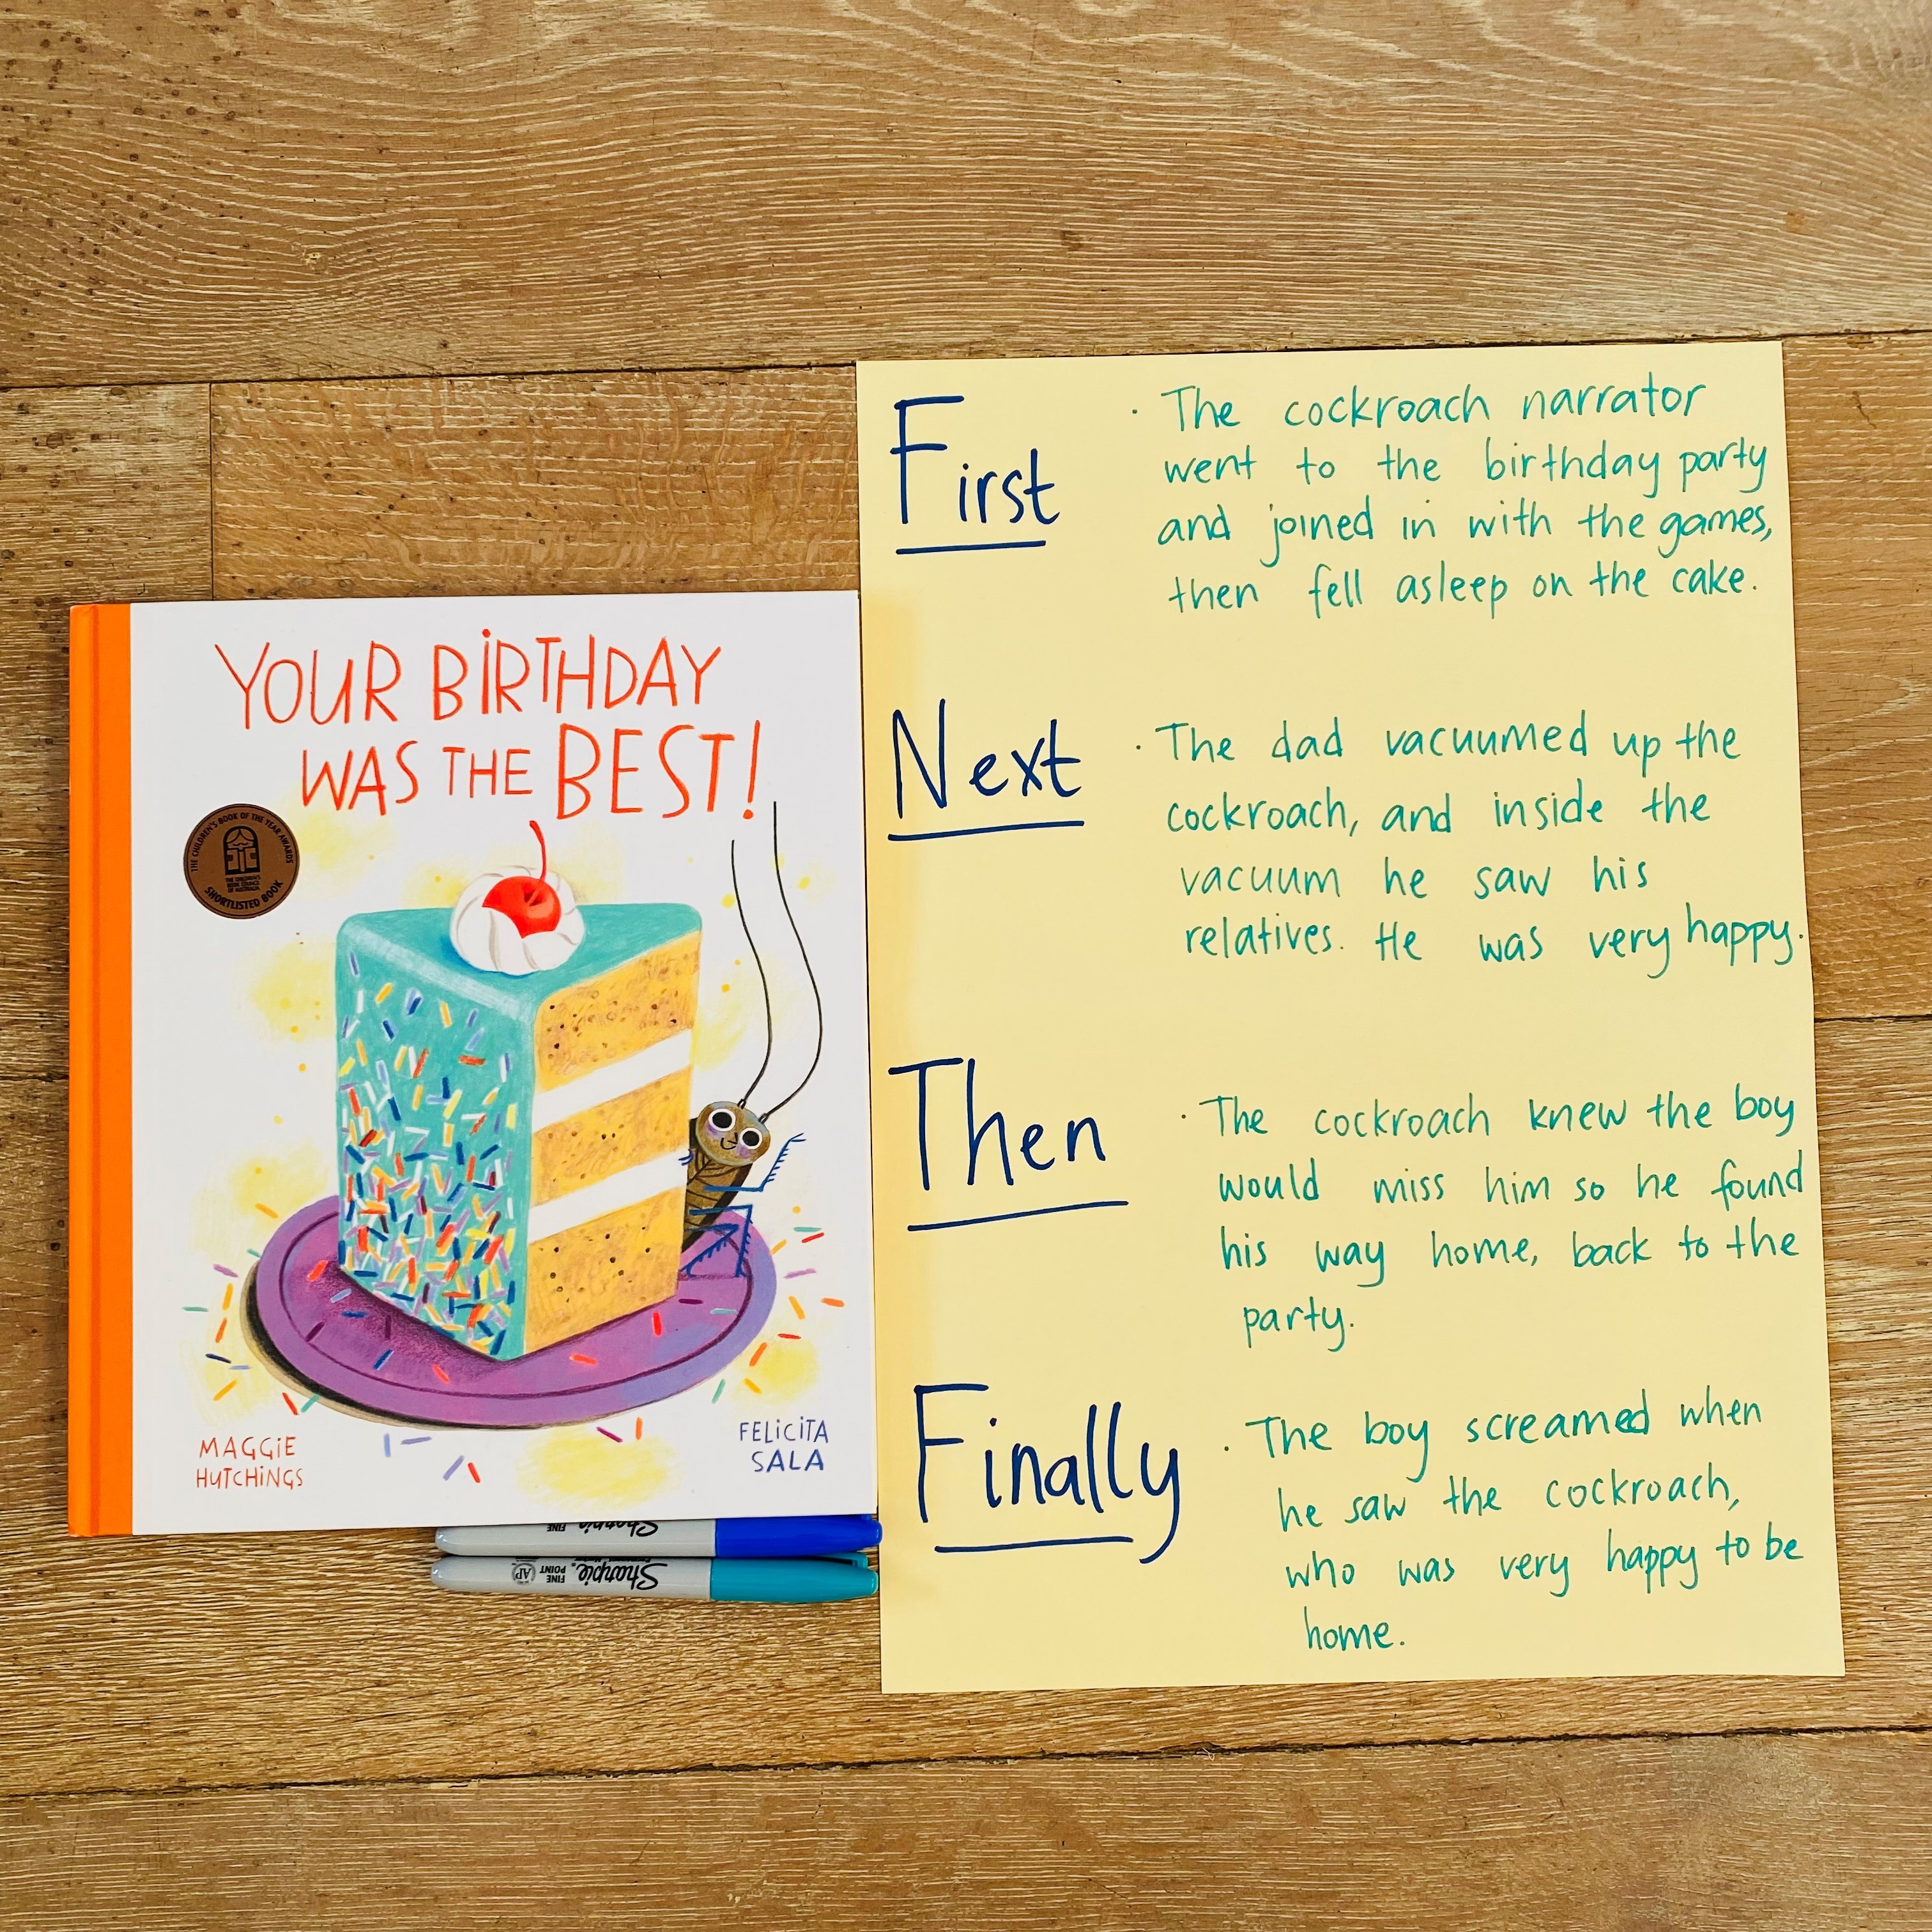 YOUR BIRTHDAY
WAS THE BEST!
THE CHILDREN'S BOOK OF THE YEAR AWARDS
THE CHILDREN'S
BOOK COUNCIL
OF AUSTRALIA
SHORTLISTED BOOK
MAGGIE
HUTCHINGS
FELICITA
SALA
Sharpie
FINE
Sharpie
FINE
POINT
AP
First
· The cockroach narrator
went to the birthday party
and joined in with the games,
then fell asleep on the cake.
Next
· The dad vacuumed up the
cockroach, and inside the
vacuum he saw his
relatives. He was very happy.
Then
· The cockroach knew the boy
would miss him so he found
his way home, back to the
party.
Finally
· The boy screamed when
he saw the cockroach,
who was very happy to be
home.